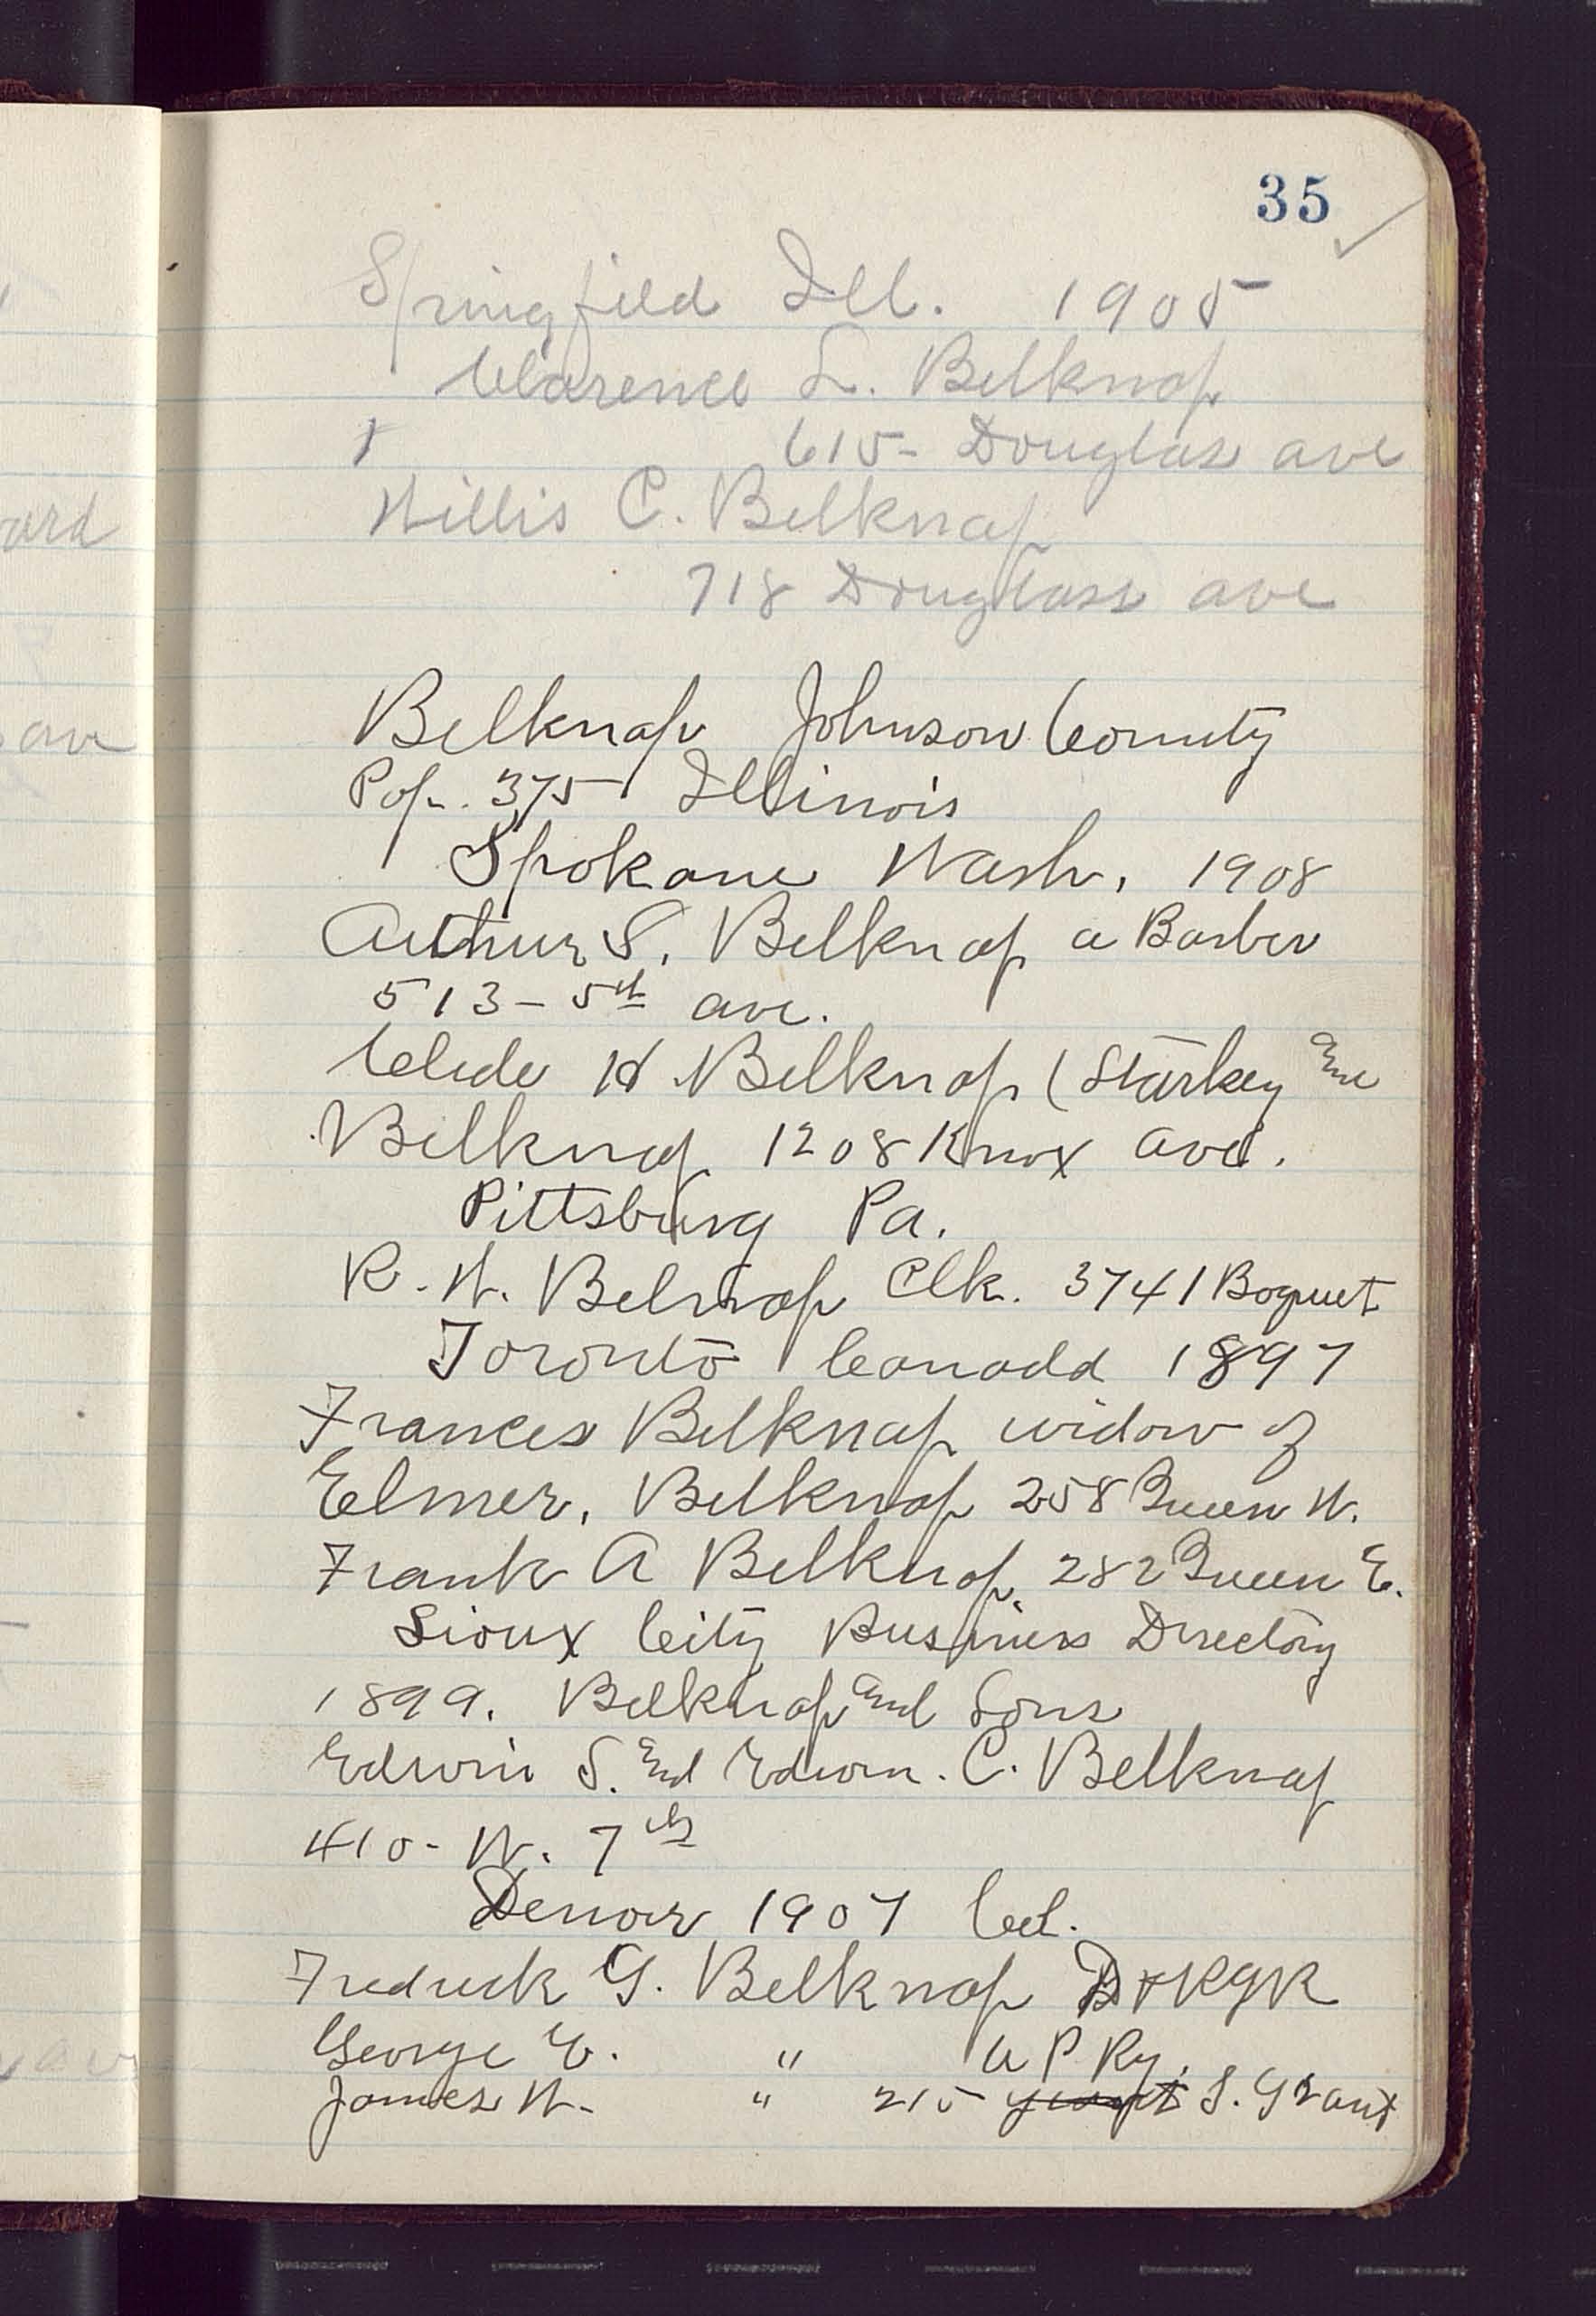 35
Springfield Ill. 1905
Clarence L. Belknap
615- Douglass ave
Willis C. Belknap
718 Douglass ave
Belknap Johnson County
Pop. 375 Illinois
Spokane Wash, 1908
Arthur S. Belknap a Barber
513-5th ave.
Clede H Belknap (Starkey and
Belknap 1208 Knox ave.
Pittsburg Pa.
R. W. Belnap Clk. 3741 Boquet
Toronto Canada 1897
Frances Belknap widow of
Elmer, Belknap 258 Queen W.
Frank A Belknap, 282 Queen E.
Sioux City Business Directory
1899. Belknap and Sons
Edwin S. and Edwin. C. Belknap
410- W. 7th
Denver 1907 Col.
Fredrick G. Belknap D+RGR
George E. " U P Ry.
James W. " 215 S. Grant
ard
ave